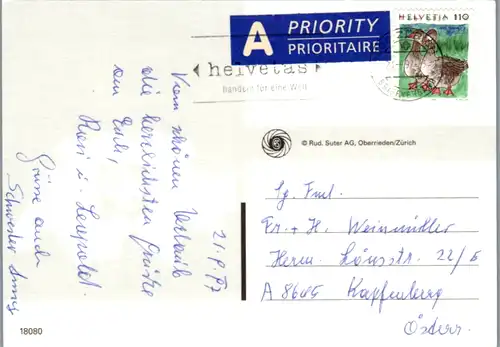 A PRIORITY
PRIORITAIRE
HELVETIA 110
helvetas
Handeln für eine Welt
© Rud. Suter AG, Oberrieden/Zürich
21.9.97
Vom schönen Urlaub
die herzlichsten Grüße
von Euch,
Rosi u. Leopold.
Grüße auch
Schwester
Fr. + H. Weinmüller
Herm. Lönsstr. 22/5
A 8605 Kapfenberg
Österr.
18080